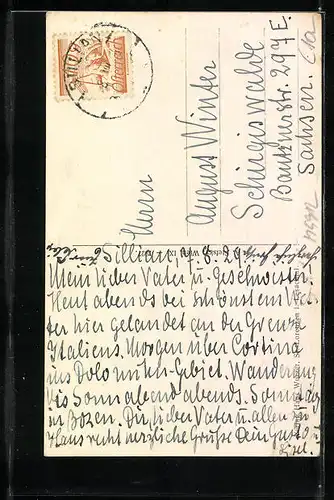 Herrn
August Winter
Schirgiswalde
Bautznerstr. 297E.
Sachsen.
Sillian, 1.8.29.
Mein lieber Vater u. Geschwister!
Heut abends bei schönstem Wet-
ter hier gelandet an der Grenze
Italiens. Morgen über Cortina
ins Dolomiten-Gebiet. Wanderung
bis Sonnabend abends. Sonntag
in Bozen. Dir, lieber Vater u. allen zu
Haus recht herzliche Grüße Dein Gustl u.
Österreich